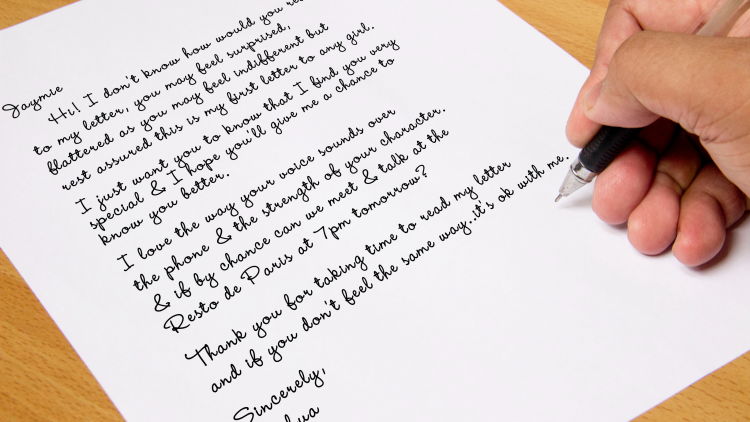 Jaymie
Hi! I don't know how would you
to my letter, you may feel surprised,
flattered as you may feel indifferent but
rest assured this is my first letter to any girl.
I just want you to know that I find you very
special & I hope you'll give me a chance to
know you better.
I love the way your voice sounds over
the phone & the strength of your character.
& if by chance can we meet & talk at the
Resto de Paris at 7pm tomorrow?
Thank you for taking time to read my letter
and if you don't feel the same way..it's ok with me.
Sincerely,